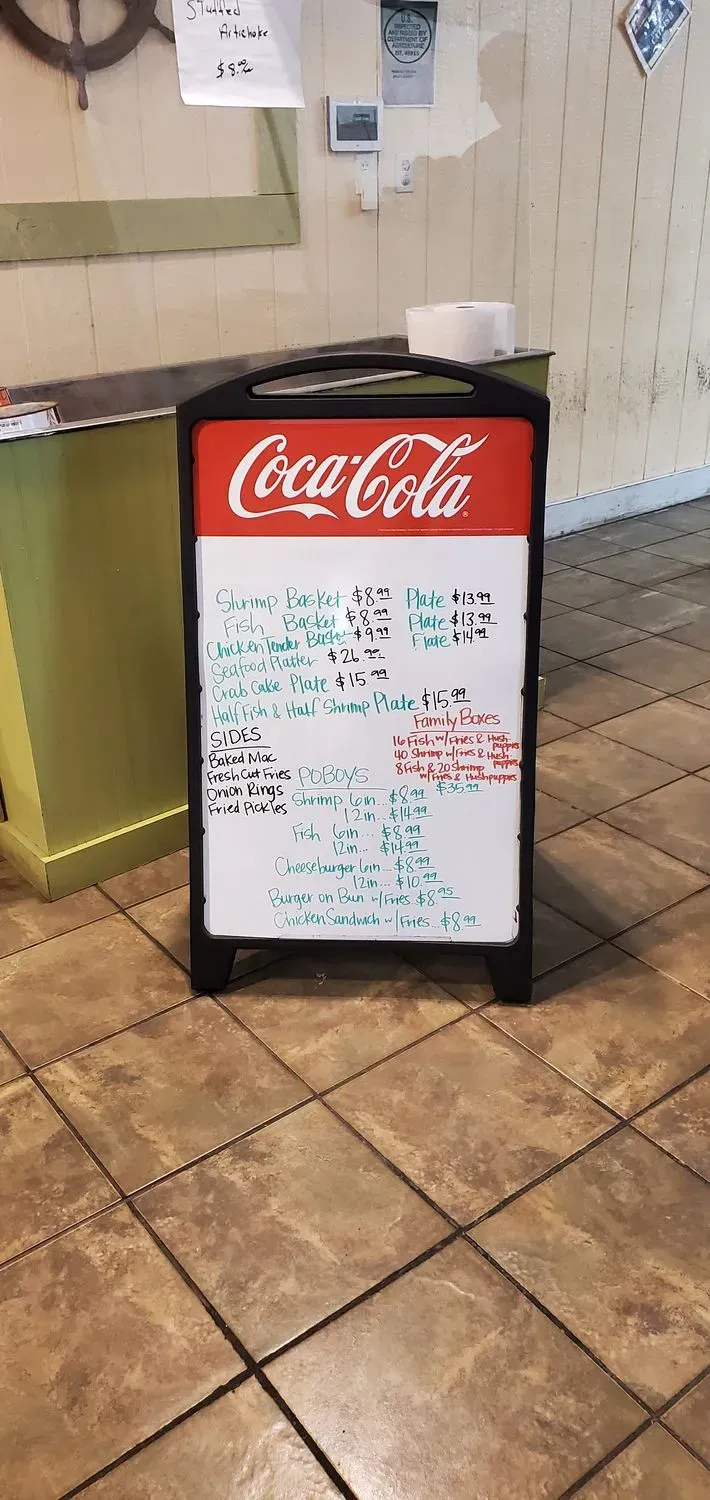 Stuffed
Artichoke
$8.00
U.S.
INSPECTED
AND PASSED BY
DEPARTMENT OF
AGRICULTURE
Coca-Cola
Shrimp Basket $8.99 Plate $13.99
Fish Basket $8.99 Plate $13.99
Chicken Tender Basket $9.99 Plate $14.99
Seafood Platter $26.99
Crab Cake Plate $15.99
Half Fish & Half Shrimp Plate $15.99
SIDES
Baked Mac
Fresh Cut Fries
Onion Rings
Fried Pickles
Family Boxes
16 Fish w/Fries & Hush-
puppies
40 Shrimp w/Fries & Hush
puppies
8 Fish & 20 Shrimp
w/Fries & Hushpuppies
$35.99
POBOYS
Shrimp 6in... $8.99
12in... $14.99
Fish 6in... $8.99
12in... $14.99
Cheeseburger 6in... $8.99
12in... $10.99
Burger on Bun w/Fries. $8.95
Chicken Sandwich w/Fries... $8.99